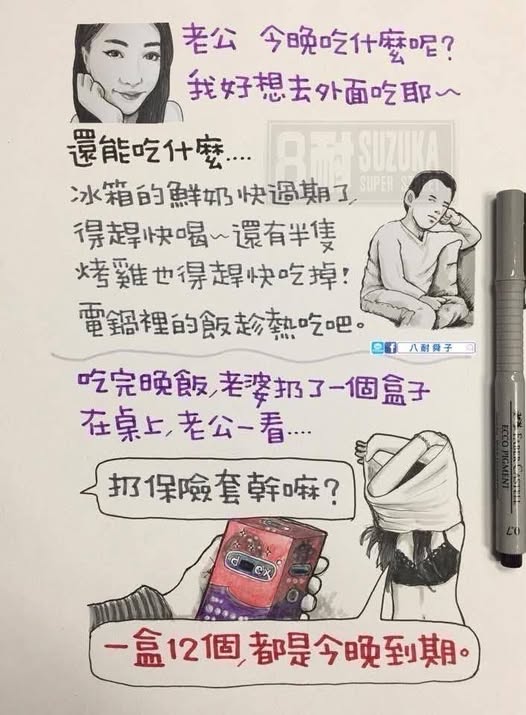 老公 今晚吃什麼呢?
我好想去外面吃耶~
還能吃什麼....
8耐 SUZUKA
冰箱的鮮奶快過期了,
得趕快喝~還有半隻
烤雞也得趕快吃掉!
電鍋裡的飯趁熱吃吧。
八耐舜子
吃完晚飯,老婆扔了一個盒子
在桌上,老公一看....
扔保險套幹嘛?
一盒12個,都是今晚到期。
ECCO PIGMENT
0.7